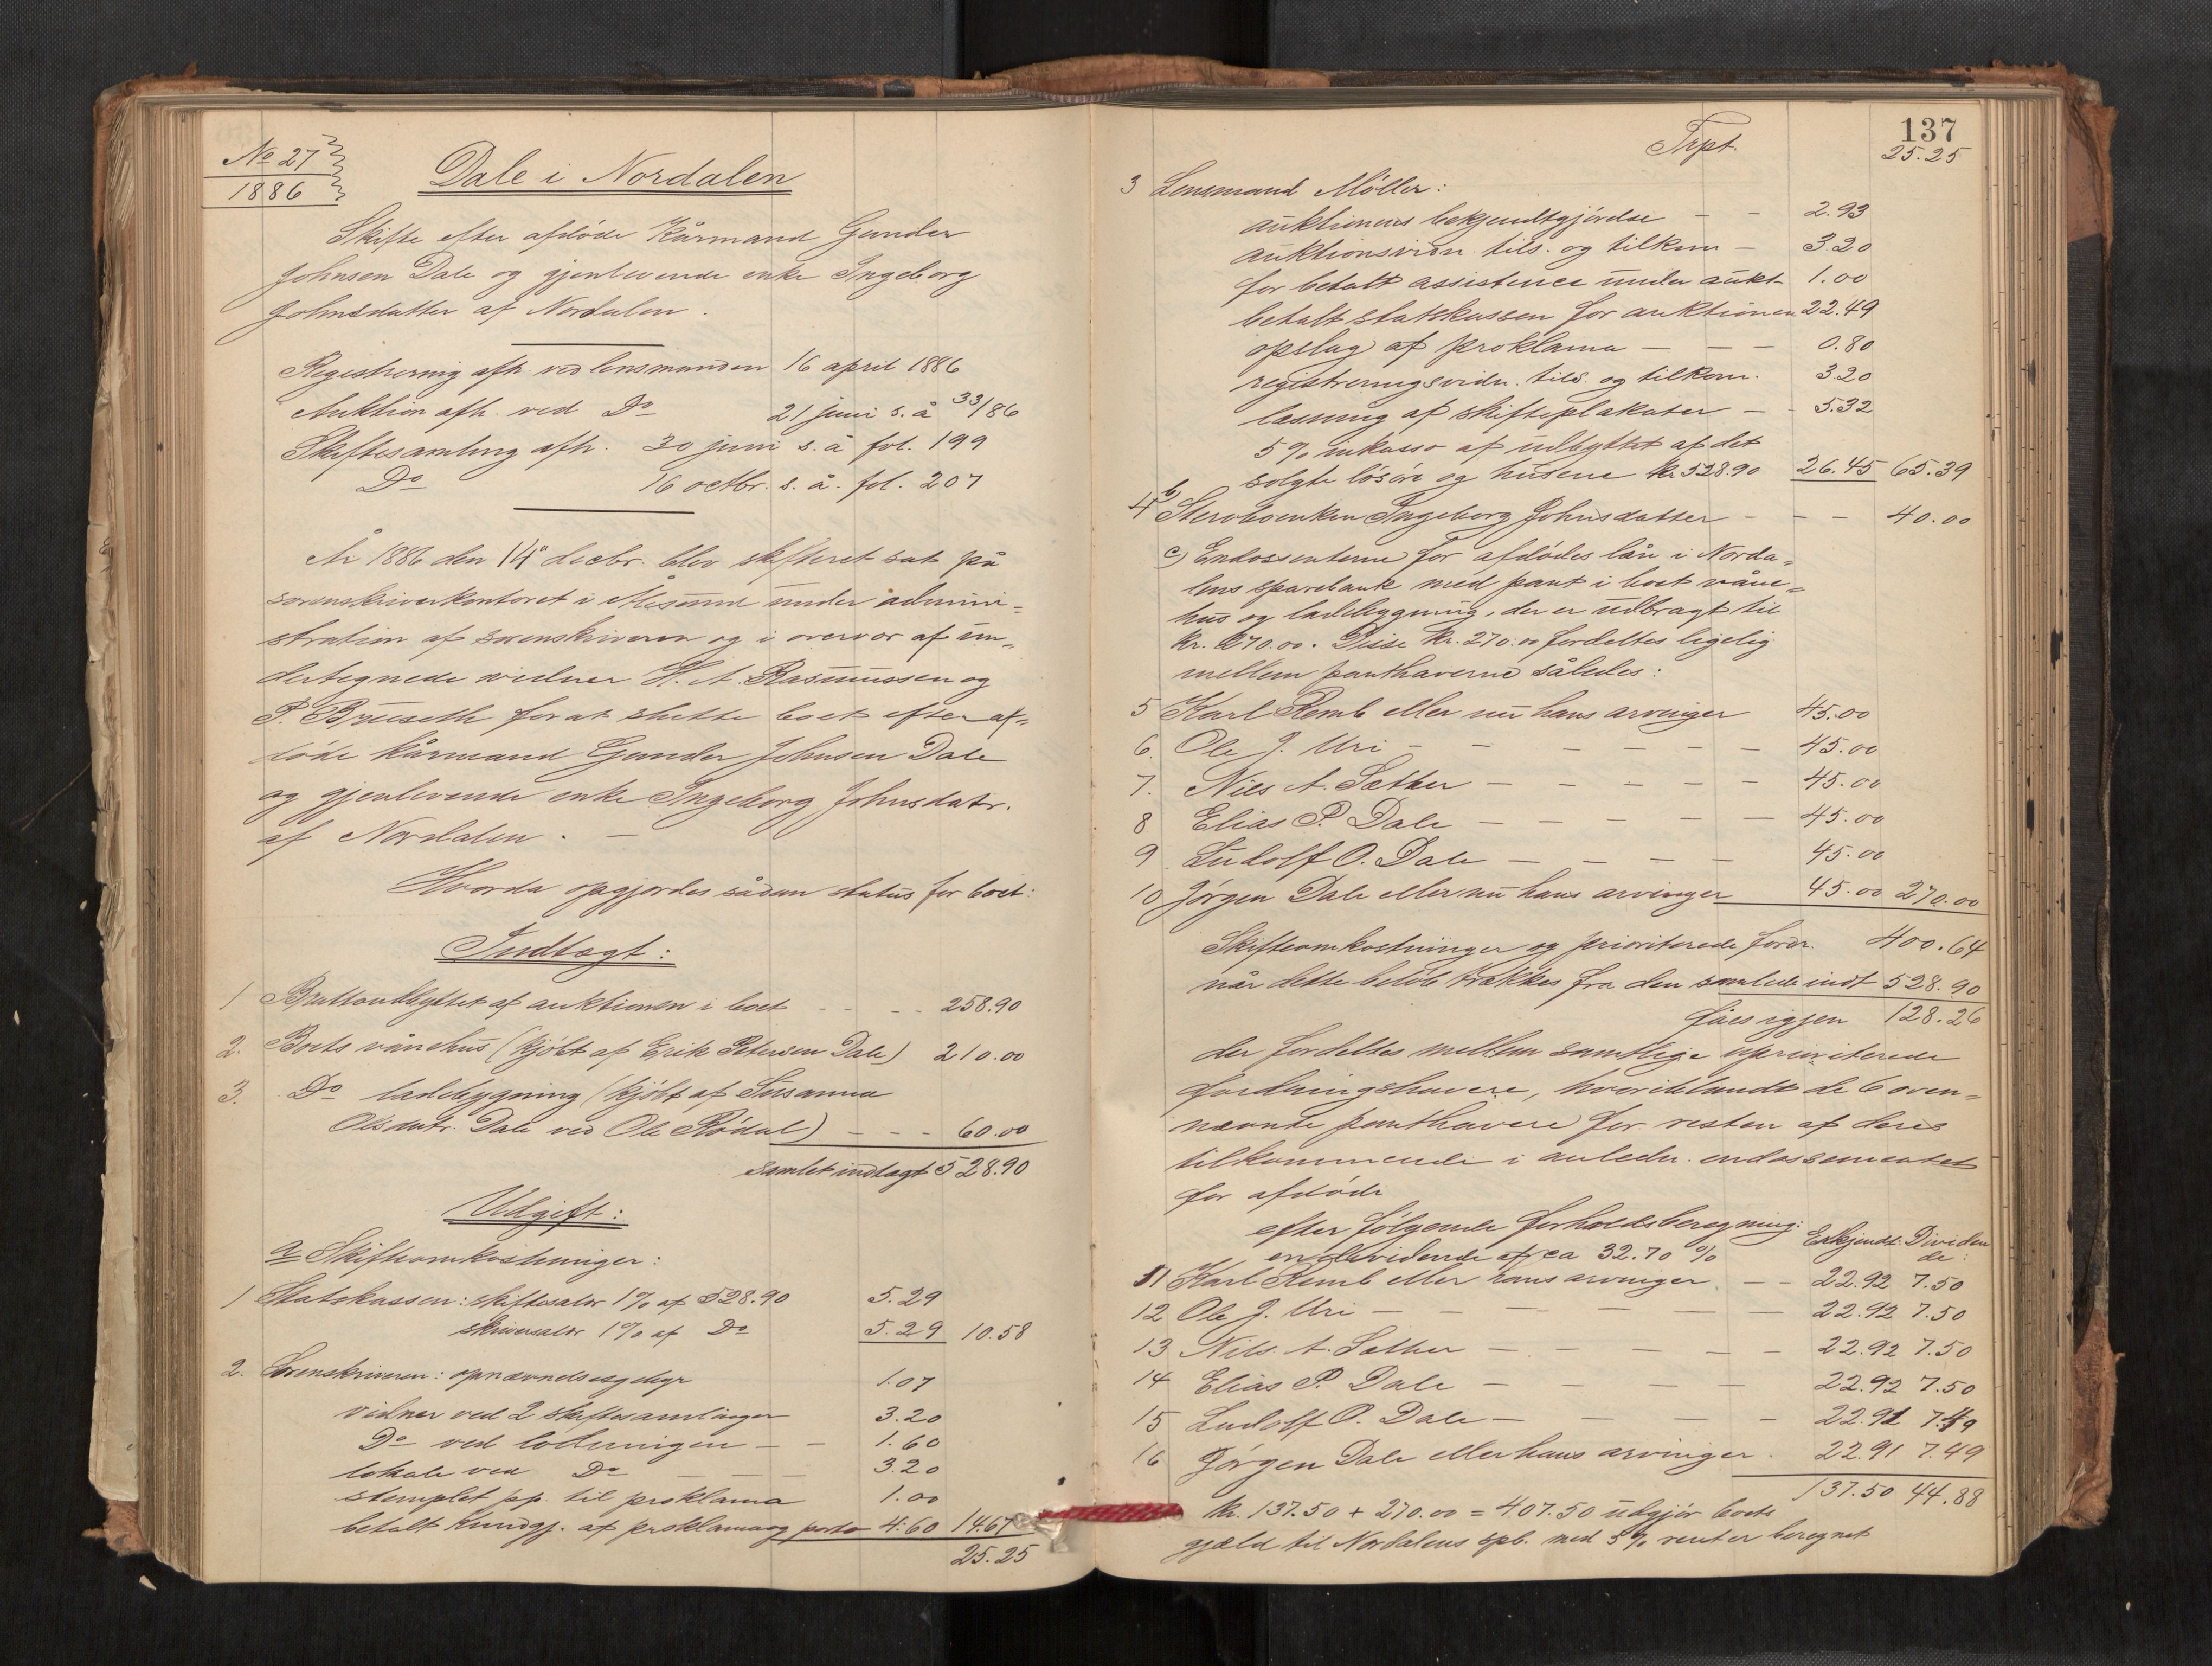 No 27
1886
Dale i Nordalen
Skifte efter afdøde Kårmand Gunder
Johnsen Dale og gjenlevende enke Ingeborg
Johnsdatter af Nordalen.
Registrering afh. ved lensmanden 16 april 1886
Auktion afh. ved Do 21 juni s. å 33/86
Skiftesamling afh. 30 juni s. å fol. 199
Do 16 octbr. s. å. fol. 207
År 1886 den 14 decbr. blev skifteret sat på
sorenskriverkontoret i Ålesund under admini=
stration af sorenskriveren og i overvær af un=
dertegnede vidner H. A. Rasmussen og
P. Bruseth for at slutte boet efter af=
døde kårmand Gunder Johnsen Dale
og gjenlevende enke Ingeborg Johnsdatr.
af Nordalen. —
Hvorda opgjordes sådan status for boet:
Indtægt:
1 Bruttoudbyttet af auktionen i boet - - - 258.90
2. Boets vånehus (kjøbt af Erik Petersen Dale) 210.00
3. Do ladebygning (kjøbt af Susanna
Olsdatr. Dale ved Ole Rødal) - - - 60.00
samlet indtægt 528.90
Udgift:
a Skifteomkostninger:
1 Statskassen: skiftesalær 1% af 528.90 5.29
skriversalær 1% af Do 5.29 10.58
2. Sorenskriveren: opnævnelsesgebyr 1.07
vidner ved 2 skiftesamlinger 3.20
Do ved slutningen - - 1.60
lokale ved Do - - - 3.20
stemplet pp. til proklama 1.00
betalt kundgj. af proklama og porto 4.60 14.67
25.25
137
Trpt. 25.25
3 Lensmand Møller:
auktionens bekjendtgjørelse - - 2.93
auktionsvidn. tils. og tilkom. - 3.20
for betalt assistence under aukt. 1.00
betalt statskassen for auktionen 22.49
opslag af proklama - - - 0.80
registreringsvidn. tils. og tilkom. 3.20
læsning af skifteplakater - - 5.32
5% inkasso af udbyttet af det
solgte løsøre og husene kr 528.90 26.45 65.39
b)
4 Stervboenken Ingeborg Johnsdatter - - - 40.00
c) Endossenterne for afdødes lån i Norda=
lens sparebank med pant i boet våne=
hus og ladebygning, der er udbragt til
kr. 270.00. Disse kr. 270.00 fordeltes ligelig
mellem panthaverne således:
5 Karl Remb eller nu hans arvinger 45.00
6. Ole J. Uri - - - - - - 45.00
7. Nils A. Sæther - - - - - 45.00
8 Elias P. Dale - - - - - - 45.00
9 Ludolf O. Dale - - - - 45.00
10 Jørgen Dale eller nu hans arvinger 45.00 270.00
Skifteomkostninger og prioriterede fordr. 400.64
når dette beløb trækkes fra den samlede indt 528.90
fåes igjen 128.26
der fordeltes mellem samtlige uprioriterede
fordringshavere, hvoriblandt de 6 oven=
nævnte panthavere for resten af deres
tilkommende i anledn. endossementet
for afdøde
efter følgende forholdsberegning:
en devidende af ca 32.70 % Erkjendt: Dividen
de:
11 Karl Remb eller hans arvinger - - 22.92 7.50
12 Ole J. Uri - - - - - - 22.92 7.50
13 Nils A. Sæther - - - - - 22.92 7.50
14 Elias P. Dale - - - - 22.92 7.50
15 Ludolf O. Dale - - - - 22.91 7.49
16 Jørgen Dale eller hans arvinger. 22.91 7.49
137.50 44.88
kr. 137.50 + 270.00 = 407.50 udgjør boets
gjæld til Nordalens spb. med 5% renter beregnet